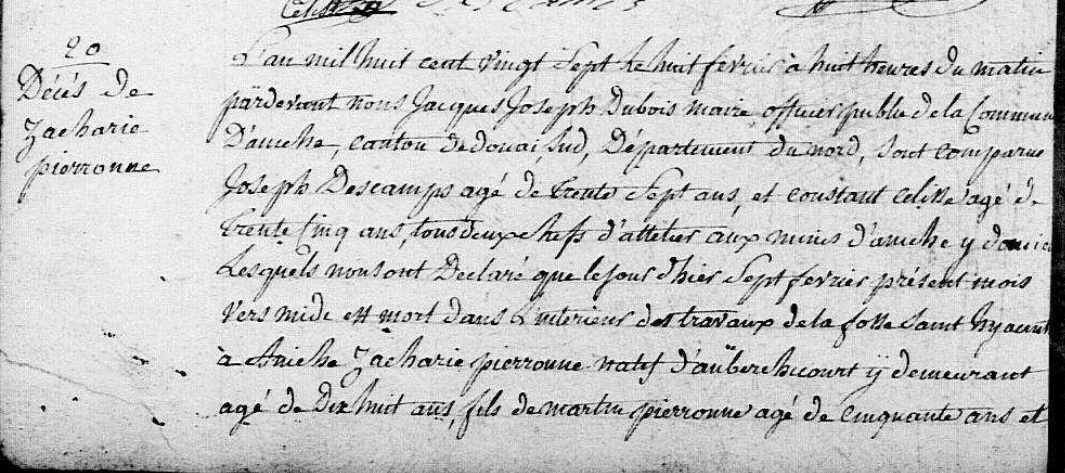 20
Décés de
Zacharie
pierronne
L'an mil huit cent vingt Sept le huit fevrier à huit heures du matin
pardevant nous Jacques Joseph Dubois maire officier public de la Commune
D'aniche, canton de douai, Sud, Département du nord, sont comparus
Joseph Descamps agé de trente Sept ans, et constant Celisse agé de
trente cinq ans, tous deux chefs d'attelier aux mines d'aniche y domici
Lesquels nous ont Declaré que le jour d'hier Sept fevrier présent mois
vers midi est mort dans L'interieur des travaux de la fosse Saint hyacinte
à Aniche Zacharie pierronne natif d'auberchicourt y demeurant
agé de Dix huit ans, fils de martin pierronne agé de cinquante ans et